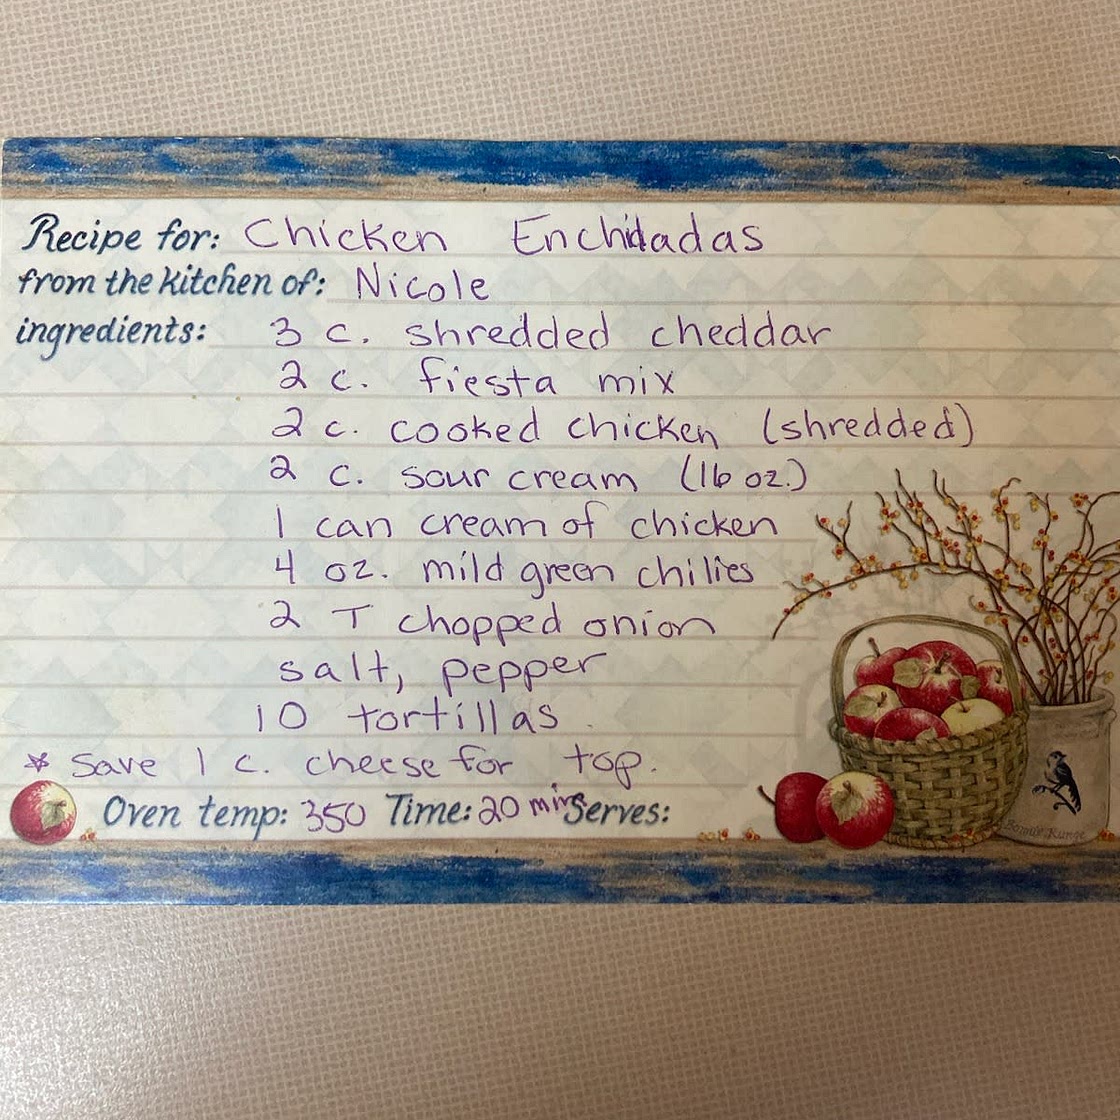 Recipe for: Chicken Enchiladas
from the kitchen of: Nicole
ingredients: 3 c. shredded cheddar
2 c. fiesta mix
2 c. cooked chicken (shredded)
2 c. sour cream (16 oz.)
1 can cream of chicken
4 oz. mild green chilies
2 T chopped onion
salt, pepper
10 tortillas
* Save 1 c. cheese for top.
Oven temp: 350 Time: 20 mins Serves: